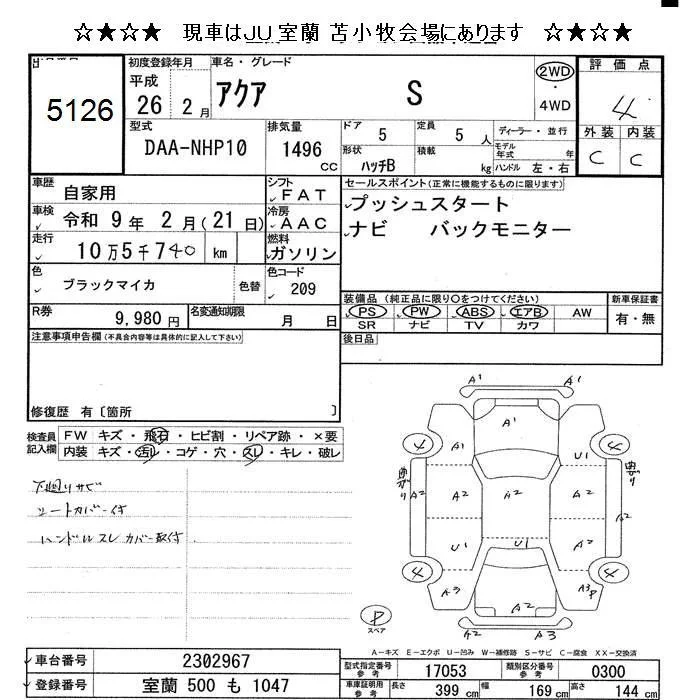 ☆★☆★　現車はJU室蘭 苫小牧会場にあります　☆★☆★
5126
初度登録年月
平成
26 2月
車名・グレード
アクア S
2WD
・
4WD
評価点
4
外装 内装
C C
型式
DAA-NHP10
排気量
1496
CC
ドア
5
定員
5 人
形状
ハッチB
積載
kg
ディーラー・並行
モデル年式 年
ハンドル 左・右
車歴
自家用
シフト
FAT
車検
令和 9年 2月(21日)
冷房
AAC
走行
10万5千740 km
燃料
ガソリン
色
ブラックマイカ
色替
色コード
209
R券
9,980円
名変通知期限
月 日
セールスポイント(正常に機能するものに限ります)
プッシュスタート
ナビ　バックモニター
装備品(純正品に限り○をつけてください)
PS PW ABS エアB AW
SR ナビ TV カワ
新車保証書
有・無
後日品
注意事項申告欄(不具合内容等は具体的に記入して下さい)
修復歴 有〔箇所 〕
検査員
記入欄
FW キズ・飛石・ヒビ割・リペア跡・×要
内装 キズ・汚レ・コゲ・穴・スレ・キレ・破レ
下廻りサビ
シートカバー付
ハンドルスレ カバー取付
A1 A1
A1
4 A1 U1 4
曲がり A2 A2 A2 A2 曲がり A2
U1 U1 A2
4 A3 A3P 4
A2
A2 A3
P
スペア
A－キズ E－エクボ U－凹み W－補修跡 S－サビ C－腐食 XX－交換済
車台番号
2302967
登録番号
室蘭 500 も 1047
型式指定番号
参考
17053
類別区分番号
参考
0300
車庫証明用
参考
長さ
399 cm
幅
169 cm
高さ
144 cm